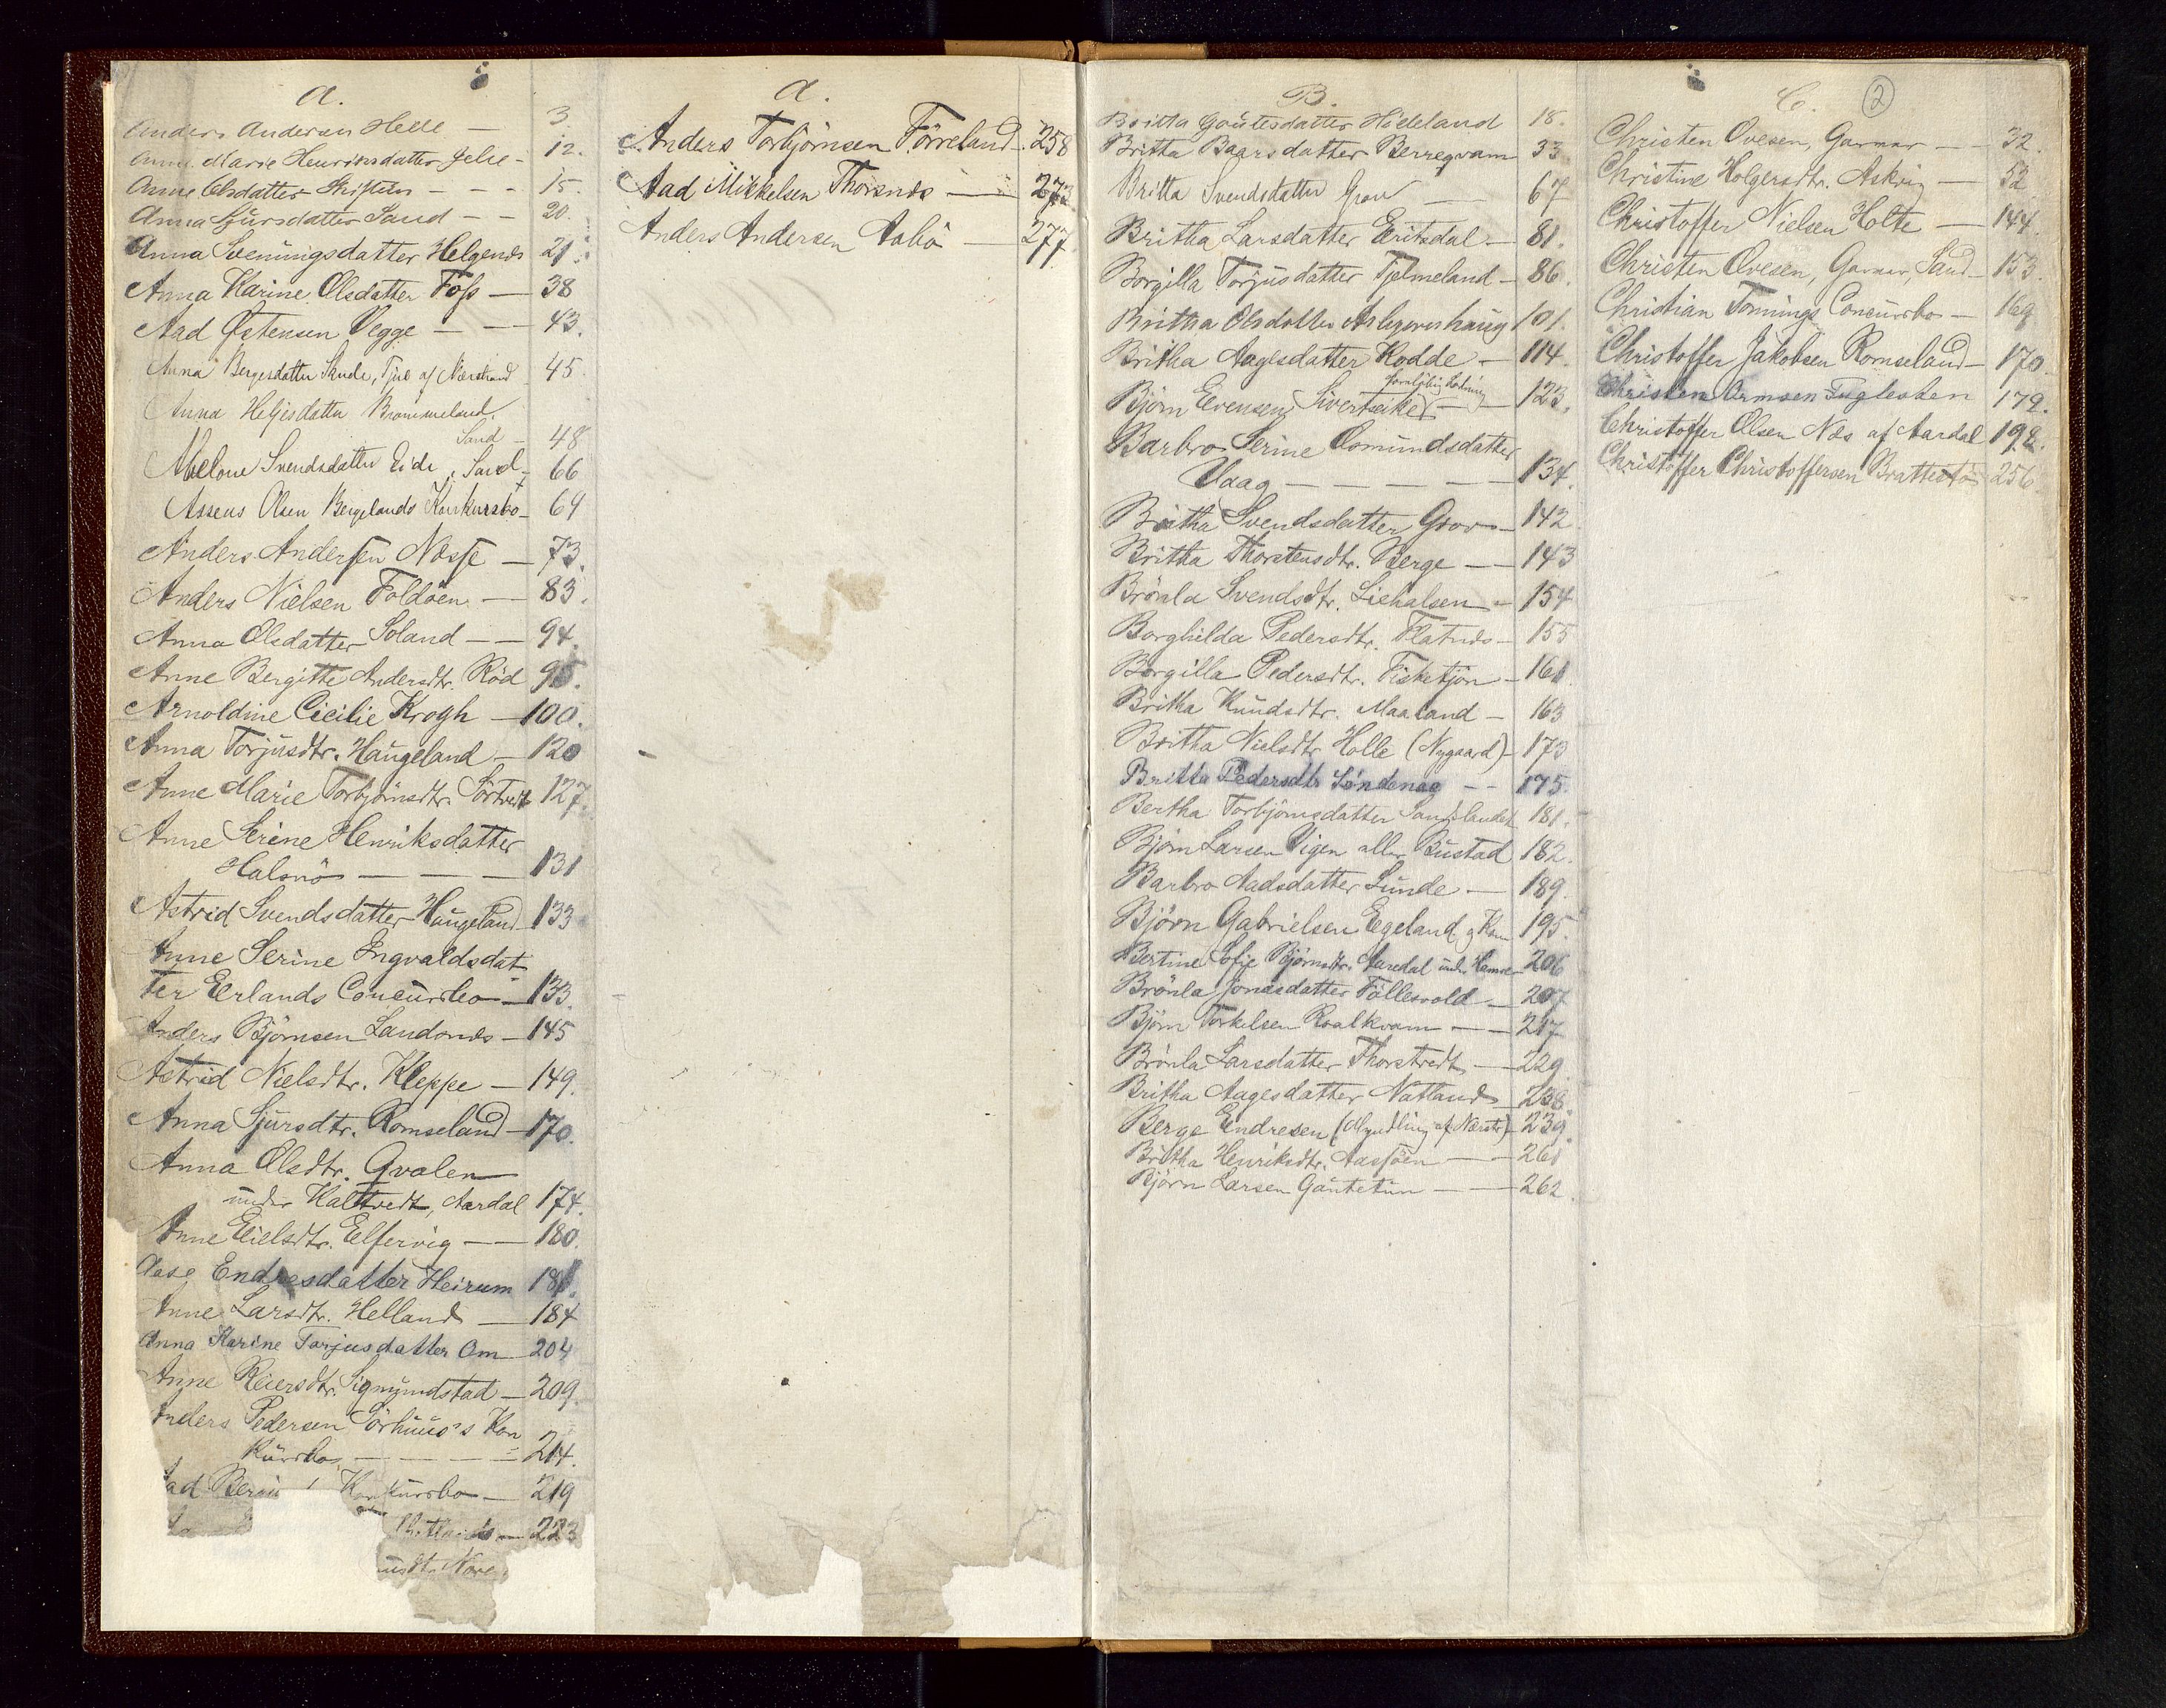 A.
Anders Andersen Helle — 3.
Anne Marie Henriksdatter Jelse - 12.
Anne Olsdatter - - - 15.
Anna Sjursdatter Sand - - 20.
Anna Sveningsdatter Helgenes 21.
Anna Karine Olsdatter Foss — 38
Aad Østensen Vegge - - — 43.
Anna Bergesdatter Sande, Tjul af Nærstrand 45
Anna Helgesdatter Brommeland,
Sand - 48
Abelone Svendsdatter Eide, Sand - 66
Asseus Olsen Bergelands Konkursbo - 69
Anders Andersen Nesse — 73.
Anders Nielsen Foldöen — 83.
Anna Olsdatter Soland — — 94.
Anne Bergitte Andersdtr. Röd 95.
Arnoldine Cicilie Krogh — 100.
Anna Torjusdtr. Haugeland — 120
Anne Marie Torbjörnsdtr. Sörtvedt 127.
Anne Serine Henriksdatter
Halsnö — — — 131
Astrid Svendsdatter Haugeland - 133
Anne Serine Ingvaldsdat
ter Erlands Concursbo — 133.
Anders Björnsen Landsnes — 145
Astrid Nielsdtr. Kleppe — 149.
Anna Sjursdtr. Romseland — 170.
Anna Olsdtr. Qvalen
under Haltvedt, Aardal 174.
Anne Eielsdtr. Elfervig — — 180.
Aase Endresdatter Heirum 181.
Anne Larsdtr. Helland — 184
Anna Karine Torjusdatter Om — 204
Anne Reiersdtr. Sigmundstad — 209.
Anders Pedersen Sörhuus's Kon
kursbo — — — — 214.
ad Konkursbo — 219
— 223
A.
Anders Torbjörnsen Förreland - 258
Aad Mikkelsen Thorsnes — 273
Anders Andersen Aabö — 277.
B.
Britta Gautesdatter Hideland 18.
Britta Baarsdatter Berregvam 33
Britta Svendsdatter Grov — 67
Britha Larsdatter Eritsdal — 81.
Borgilla Torjusdatter Tjelmeland — 86.
Britha Olsdatter 101.
Britha Aagesdatter Hodde — 114.
Björn Evensen Sivertseike (foreløbig Lodning) — 123.
Barbro Serine Osmundsdatter
Vaag — — — — — 134.
Britha Svendsdatter Grov — 142
Britha Thorstensdtr. Berge — — 143
Brönla Svendsdtr. Liehalsen — 154
Borghilda Pedersdtr. Flatnes — 155
Borgilla Pedersdtr. Fisketjön — 161.
Britha Knudsdtr. Maaland — 163
Britha Nielsdtr. Holle (Nygaard) — 173
Britta Pedersdtr Söndenaa — — 175.
Bertha Torbjörnsdatter Sandslandet 181.
Björn Larsen Vigen eller Bustad 182.
Barbro Aadsdatter Lunde — 189.
Björn Gabrielsen Egeland g Kone 195.
Bertine Sofie Björnsdtr. Aaredal under 206
Brönla Jonasdatter Föllesvold — 207
Björn Torkelsen Roalkvam — — 217
Brönla Larsdatter Thorstvedt — 229.
Britha Aagesdatter Natland — 238
Berge Endresen (Myndling af Nærstr) — 239.
Britha Henriksdtr. — — 261
Björn Larsen Gautetun — — 262.
C. 2
Christen Ovesen, Garver — — 32.
Christine Holgersdtr. Askvig — 52
Christoffer Nielsen Holte — 144.
Christen Ovesen, Garver, Sand - 153.
Christian Tonnings Concursbo — 169
Christoffer Jakobsen Romseland - 170.
Christen Ormsen Fuglesten 179.
Christoffer Olsen Næs af Aardal 192.
Christoffer Christoffersen Brattestö - 256.